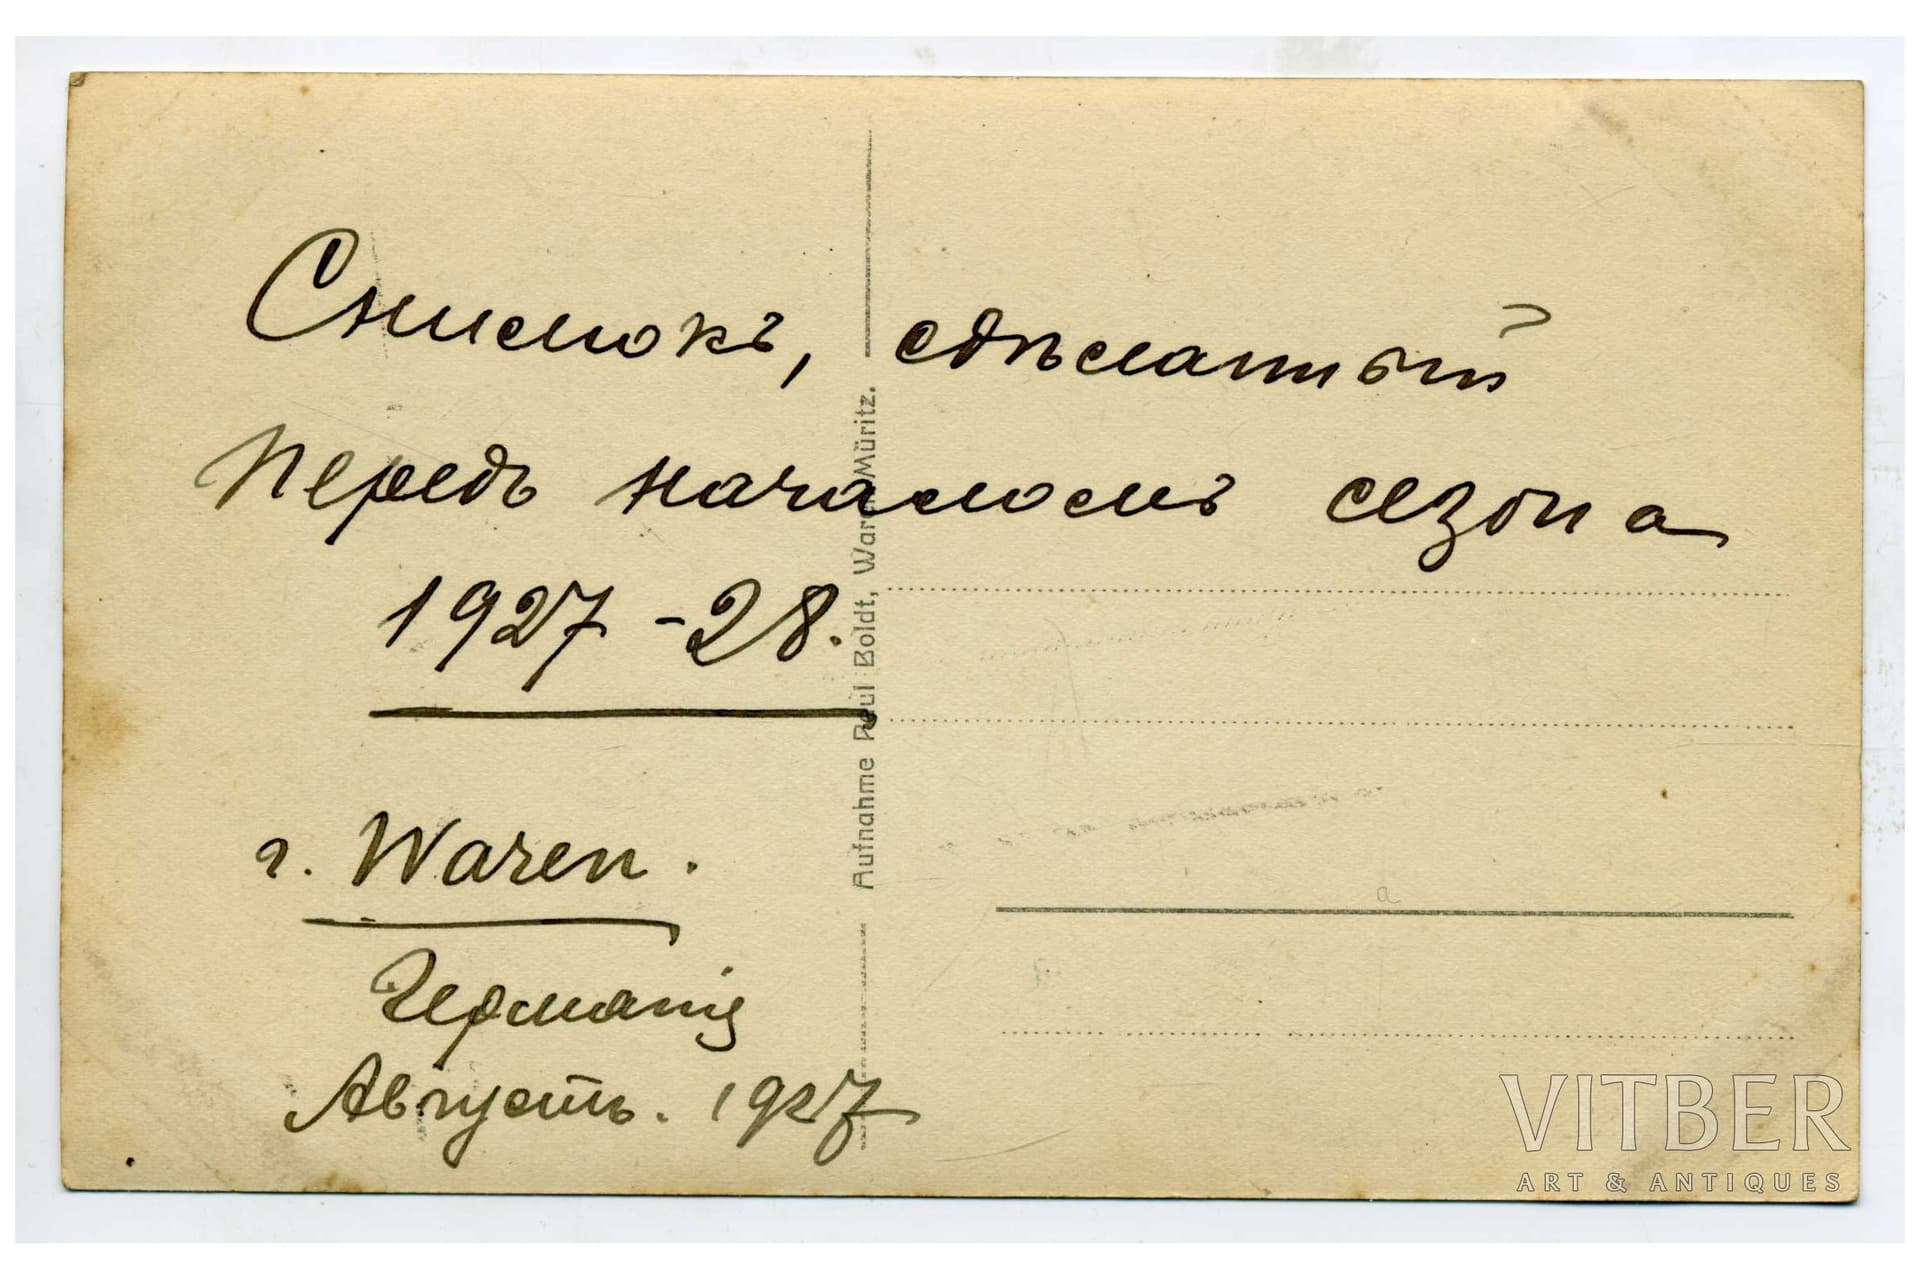 Снимокъ, сдѣланный
передъ началомъ сезона
1927-28.
г. Waren.
Германія
Августъ. 1927
Aufnahme Paul Boldt, Waren-Müritz.
VITBER
ART & ANTIQUES